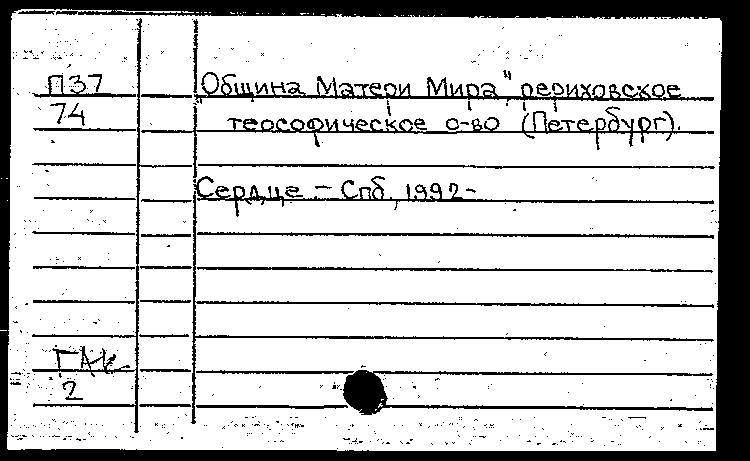 П37 "Община Матери Мира", рериховское
74 теософическое о-во (Петербург).
Сердце. - Спб, 1992-
ГАК
2